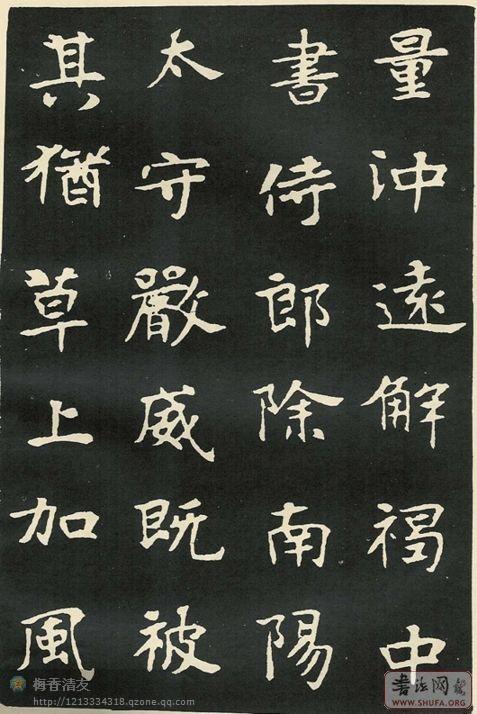 量沖遠解褐中
書侍郎除南陽
太守嚴威既被
其猶草上加風
梅香清友
http://1213334318.qzone.qq.com
書法网
WWW.SHUFA.ORG